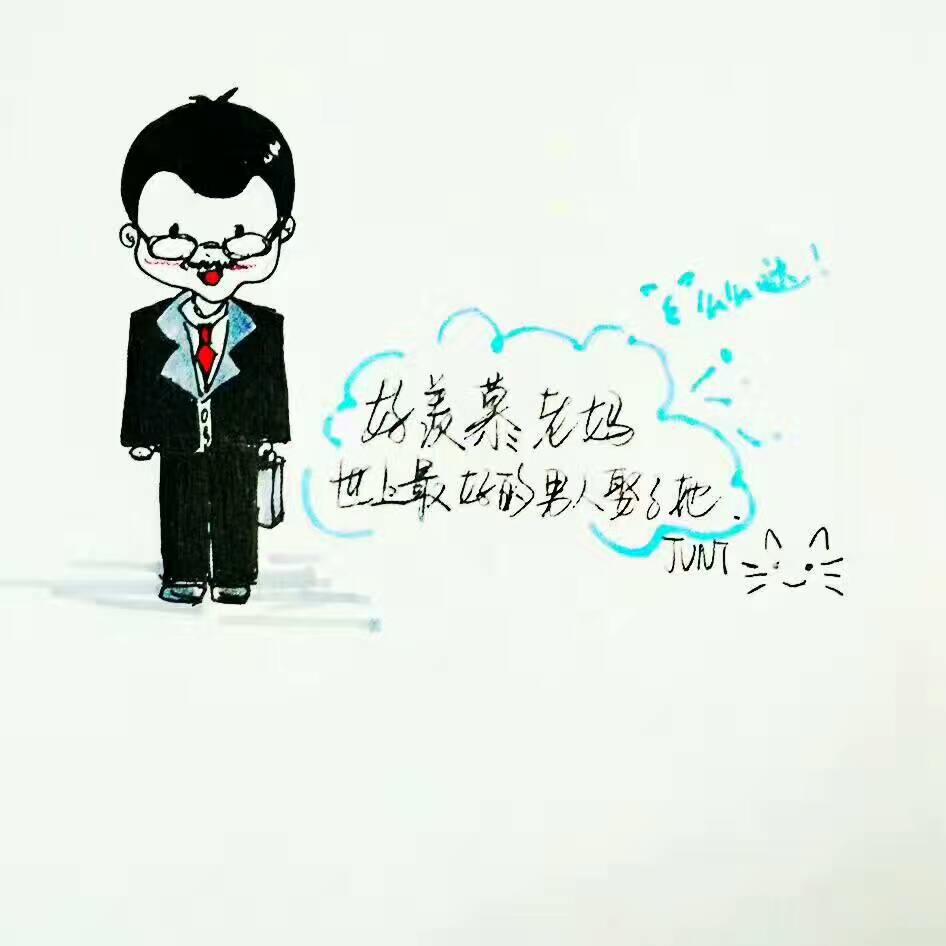 好羡慕老妈
世上最好的男人娶了她.
JUNT